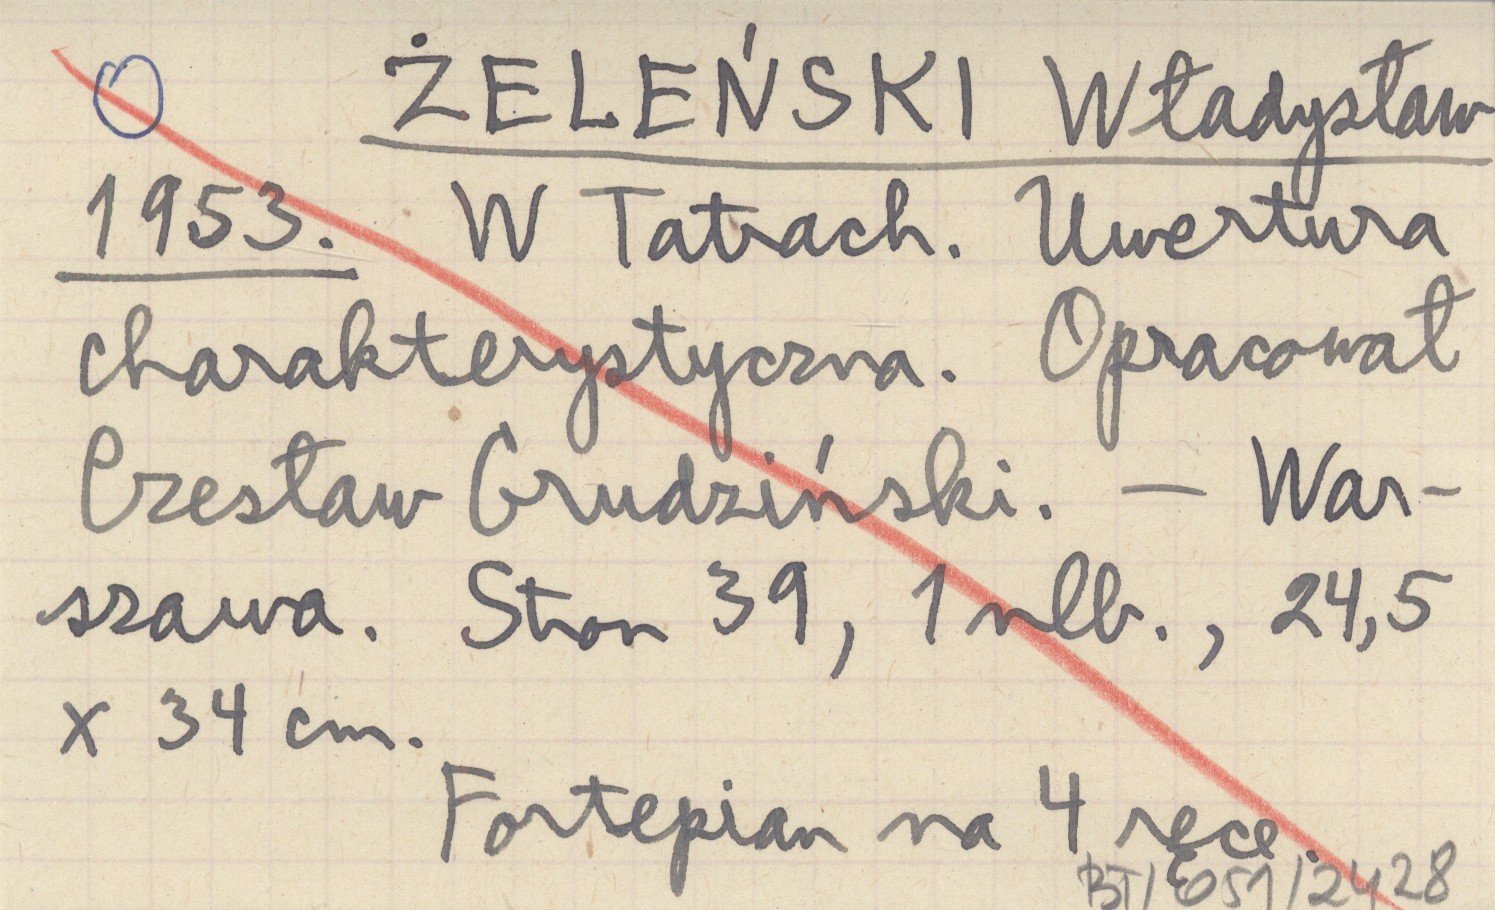 ŻELEŃSKI Władysław
1953. W Tatrach. Uwertura
charakterystyczna. Opracował
Czesław Grudziński. — War-
szawa. Stron 39, 1 nlb., 24,5
x 34 cm.
Fortepian na 4 ręce.
BT/E051/2428